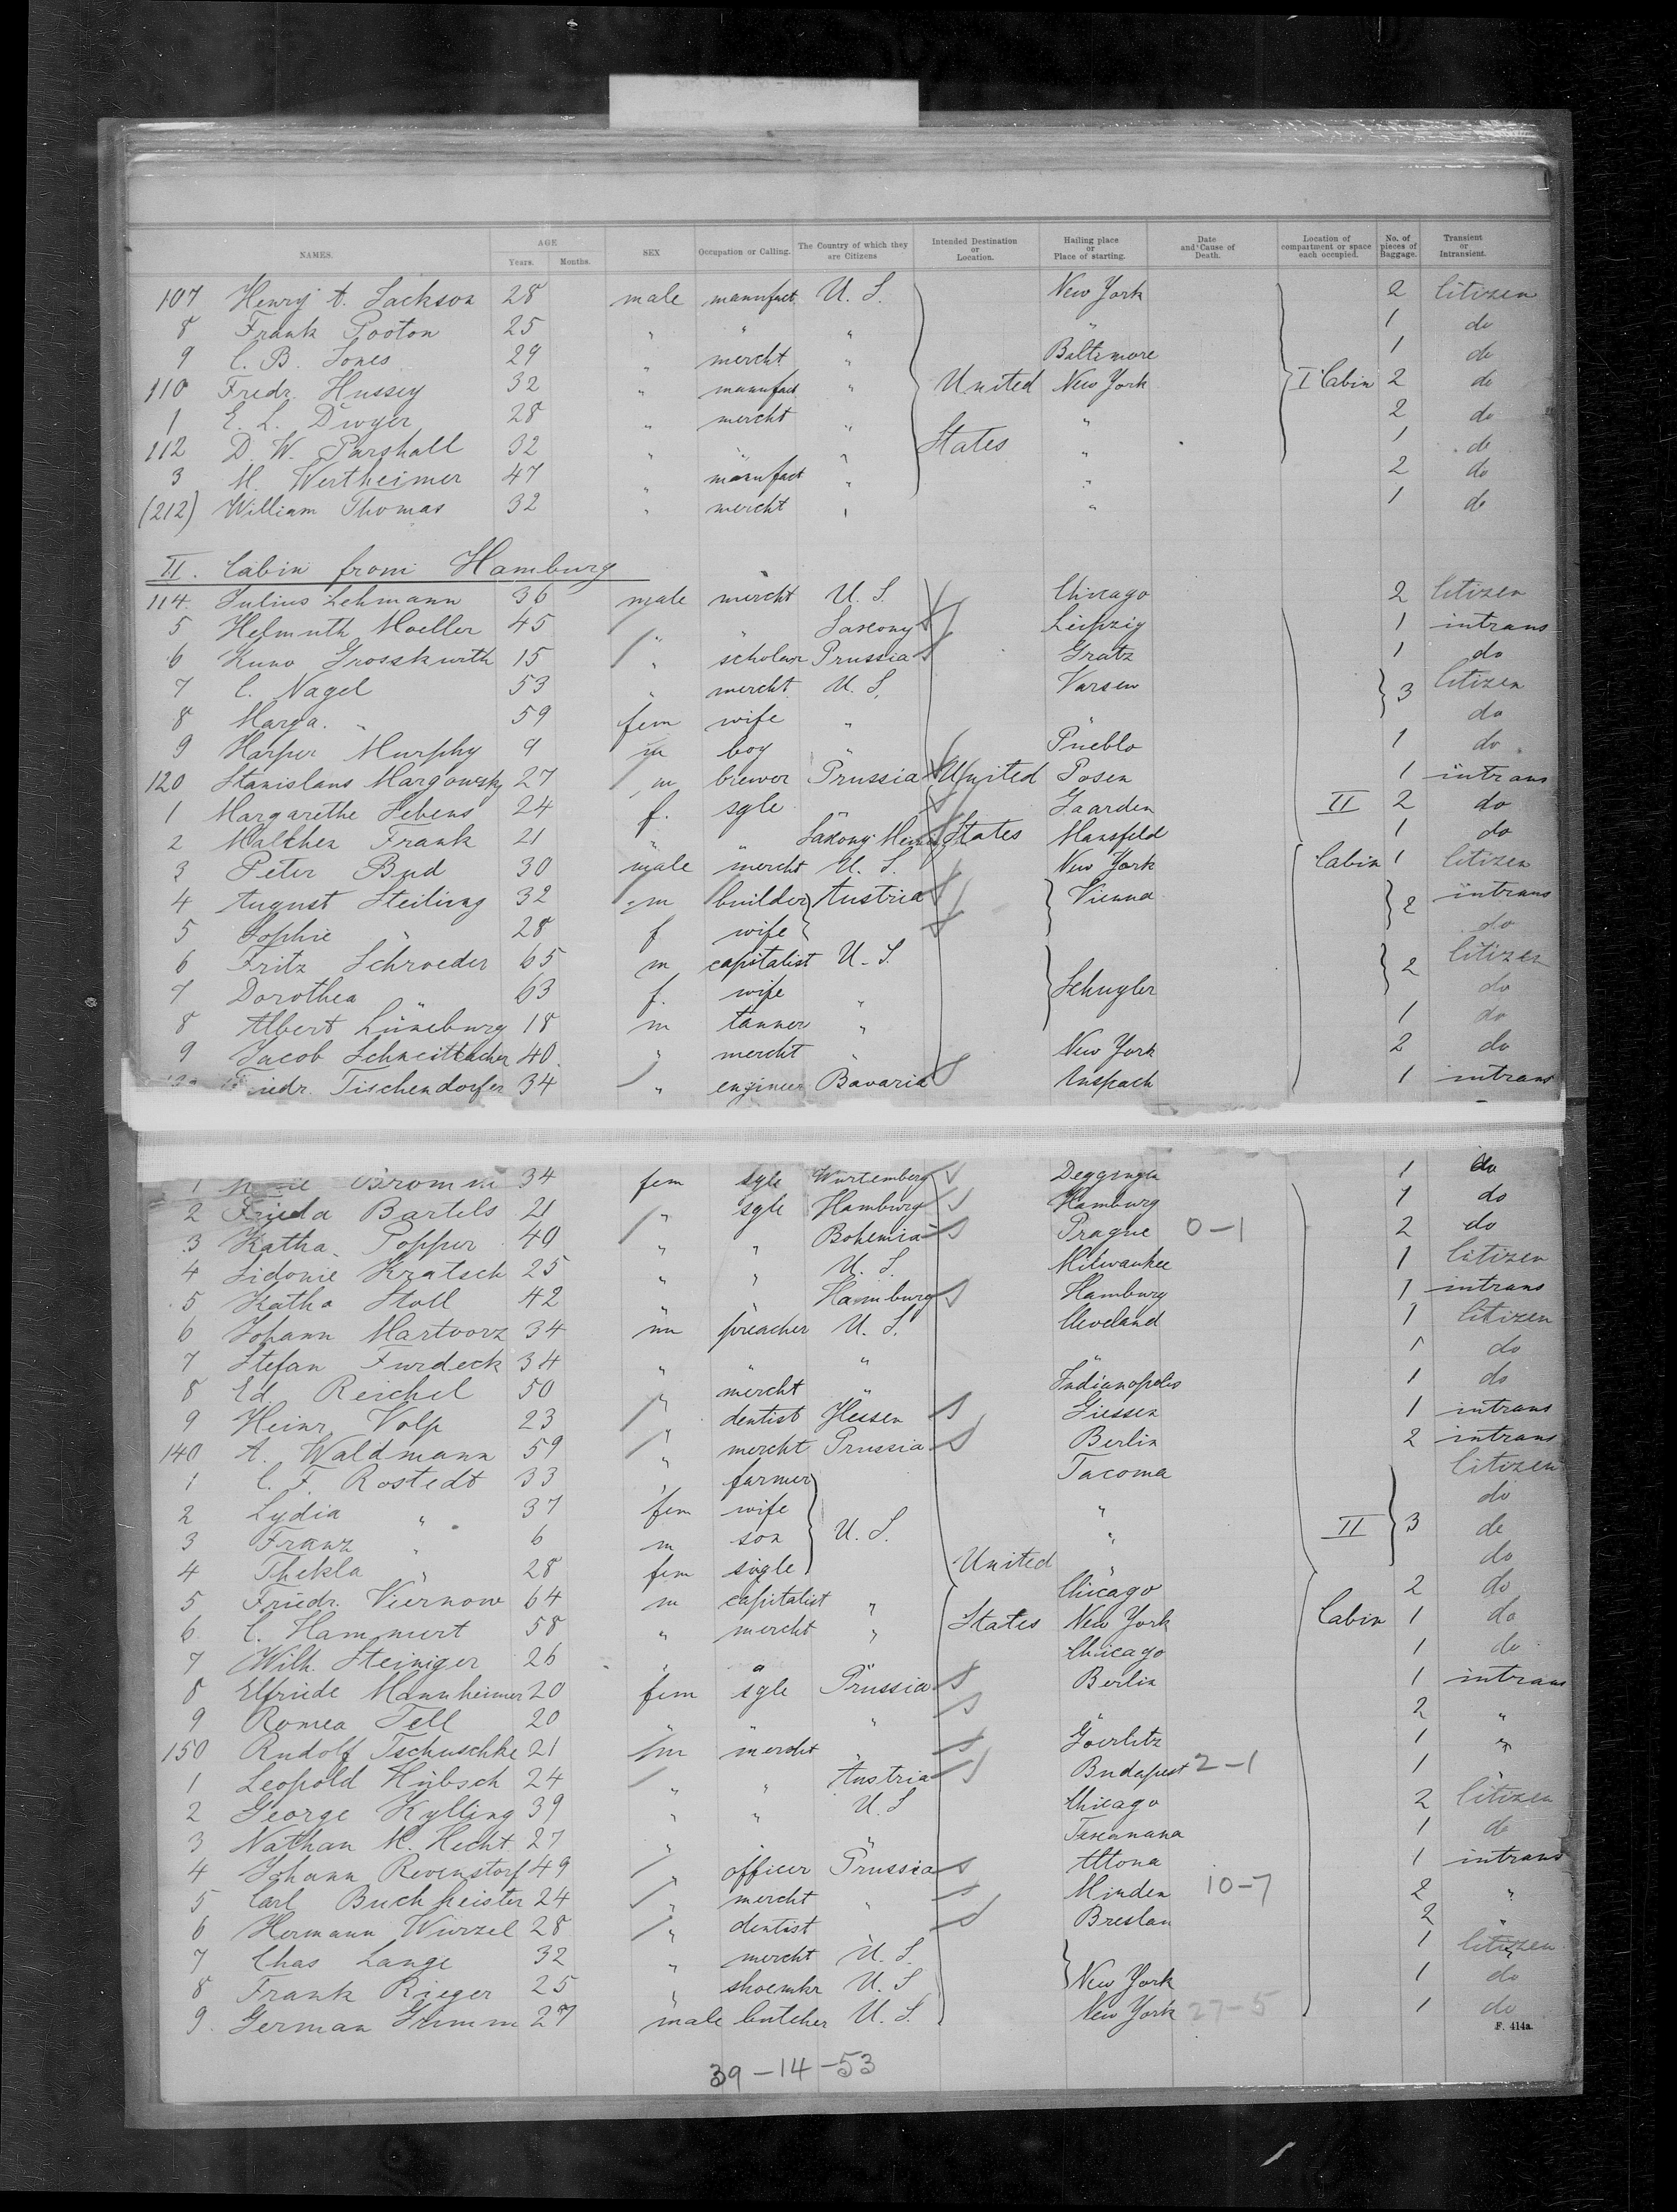 NAMES. AGE Years. Months. SEX Occupation or Calling. The Country of which they are Citizens Intended Destination or Location. Hailing place or Place of starting. Date and Cause of Death. Location of compartment or space each occupied. No. of pieces of Baggage. Transient or Intransient.
107 Henry A. Jackson 28 male manufact U. S. New York 2 Citizen
8 Frank Pooton 25 " " " " 1 do
9 C. B. Jones 29 " mercht " Baltimore 1 do
110 Fredr. Hussey 32 " manufact " United New York I Cabin 2 do
1 E. L. Dwyer 28 " mercht " " 2 do
112 D. W. Parshall 32 " " " States " 1 do
3 M. Wertheimer 47 " manufact " " 2 do
(212) William Thomas 32 " mercht " " 1 do
II. Cabin from Hamburg
114. Julius Lehmann 36 male mercht U. S. Chicago 2 Citizen
5 Helmuth Moeller 45 " " Saxony Leipzig 1 intrans
6 Kuno Grosskurth 15 " scholar Prussia Gratz 1 do
7 C. Nagel 53 " mercht U. S. Varsen 3 Citizen
8 Marga. " 59 fem wife " do
9 Harper Murphy 9 m boy " Pueblo 1 do
120 Stanislaus Margowsky 27 m brewer Prussia United Posen 1 intrans
1 Margarethe Sebens 24 f. sgle " Gaarden II 2 do
2 Frank 21 " " Saxony States Mansfeld 1 do
3 Peter Bud 30 male mercht U. S. New York Cabin 1 Citizen
4 August Steiling 32 m builder Austria Vienna 2 intrans
5 Sophie " 28 f wife do
6 Fritz Schroeder 65 m capitalist U. S. 2 Citizen
7 Dorothea " 63 f. wife " Schuyler do
8 Albert Lüneburg 18 m tanner " 1 do
9 Jacob 40 " mercht " New York 2 do
Tischendorfer 34 " engineer Bavaria Anspach 1 intrans
1 34 fem sgle Würtemberg 1 do
2 Frieda Bartels 21 " sgle Hamburg Hamburg 1 do
3 Katha. Popper 40 " " Bohemia Prague 0-1 2 do
4 Sidonie Kratsch 25 " " U. S. Milwaukee 1 Citizen
5 Katha Stoll 42 Hamburg Hamburg 1 intrans
6 Johann Martvorz 34 m preacher U. S. Cleveland 1 Citizen
7 Stefan Furdeck 34 " " " " 1 do
8 Ed. Reichel 50 " mercht " Indianopolis 1 do
9 Heinr. Volp 23 " dentist Hessen Giessen 1 intrans
140 A. Waldmann 59 " mercht Prussia Berlin 2 intrans
1 C. F. Rostedt 33 " farmer Tacoma Citizen
2 Lydia " 37 fem wife " do
3 Franz " 6 m son U. S. " II 3 do
4 Thekla " 28 fem sigle United " do
5 Friedr. Viernow 64 m capitalist " Chicago 2 do
6 C. Hammert 58 " mercht " States New York Cabin 1 do
7 Wilh. Steiniger 26 " " " Chicago 1 do
8 Elfriede Mannheimer 20 fem sgle Prussia Berlin 1 intrans
9 Romea Tell 20 " " " 2 "
150 Rudolf Tschuschke 21 m mercht " Goerlitz 1 "
1 Leopold Hübsch 24 " " Austria Budapest 2-1 1 "
2 George Kylling 39 " " U. S Chicago 2 Citizen
3 Nathan M. Hecht 27 " " " Texanana 1 do
4 Johann Revenstorf 49 " officer Prussia Altona 1 intrans
5 Carl Buchheister 24 " mercht " Minden 10-7 2 "
6 Hermann Würzel 28 " dentist " Breslau 2 "
7 Chas Lange 32 " mercht U. S. 1 Citizen
8 Frank Rieger 25 " shoemkr U. S New York 1 do
9. German Grimm 27 male butcher U. S. New York 27-5 1 do
F. 414a.
39-14-53